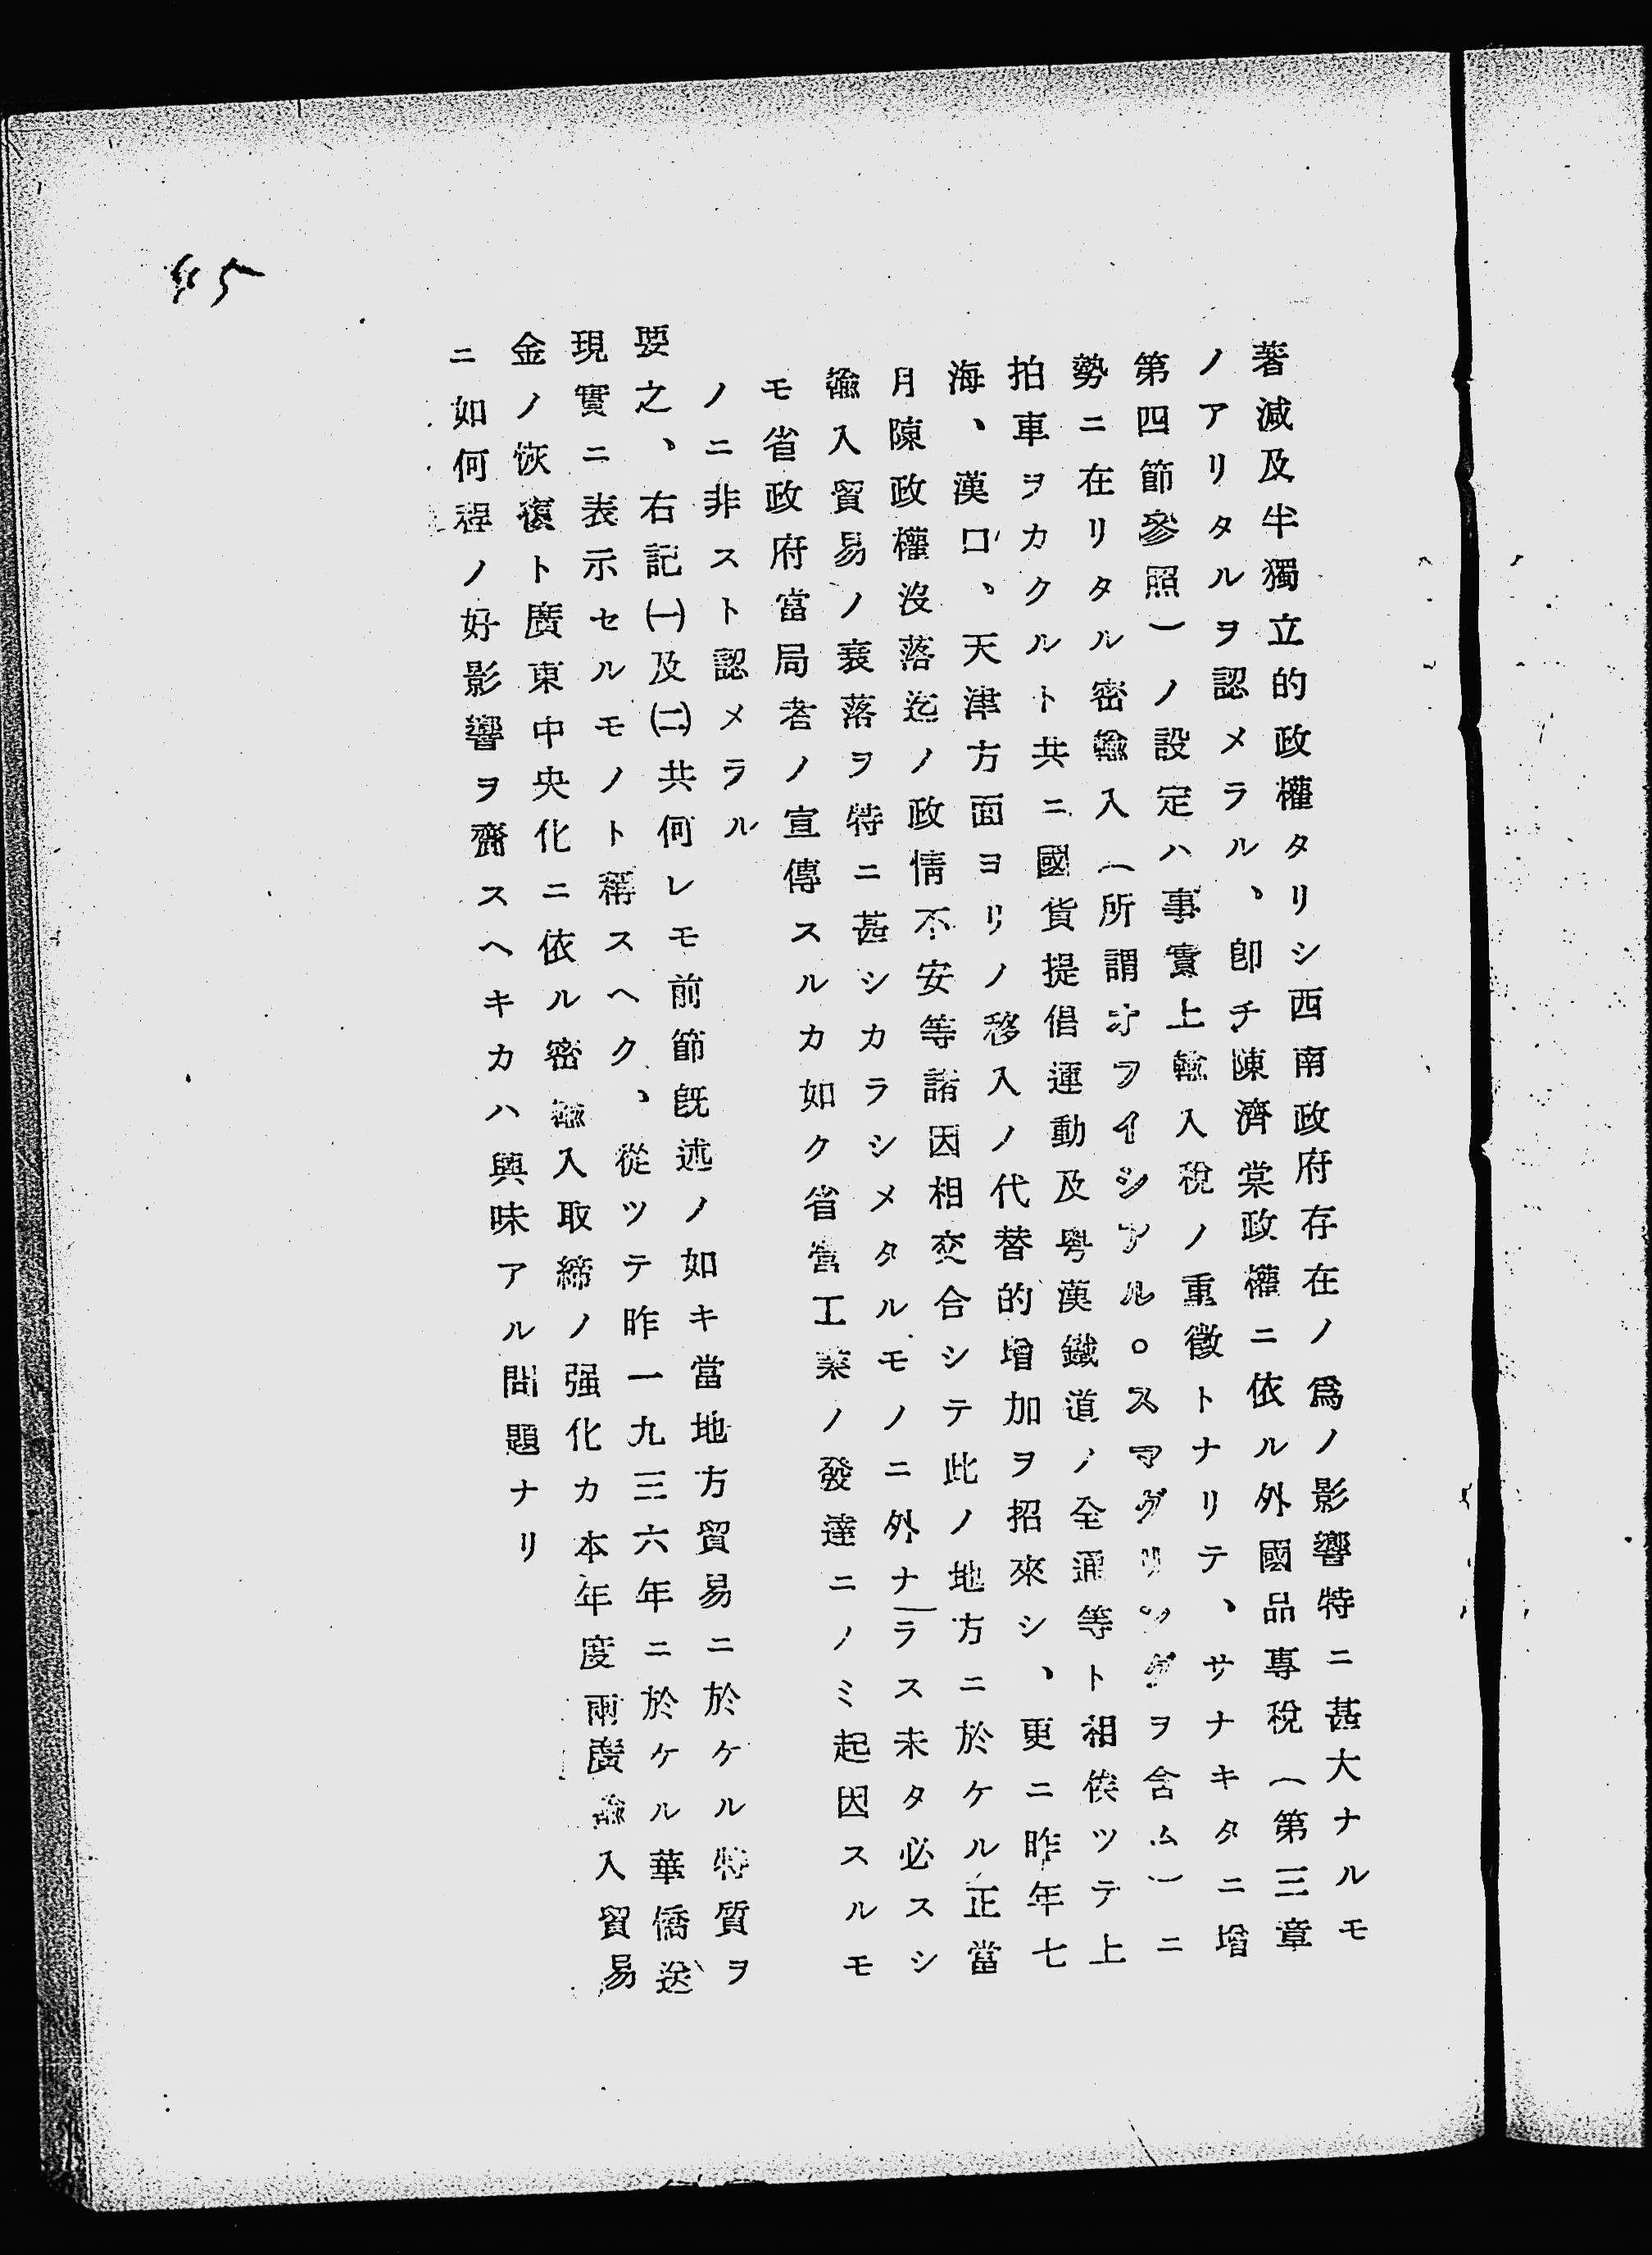 著減及半獨立的政權タリシ西南政府存在ノ爲ノ影響特ニ甚大ナルモ
ノアリタルヲ認メラル、卽チ陳濟棠政權ニ依ル外國品專稅（第三章
第四節參照）ノ設定ハ事實上輸入稅ノ重徵トナリテ、サナキタニ增
勢ニ在リタル密輸入（所謂オフイシアル。スマグリングヲ含ム）ニ
拍車ヲカクルト共ニ國貨提倡運動及粤漢鐵道ノ全通等ト相俟ツテ上
海、漢口、天津方面ヨリノ移入ノ代替的增加ヲ招來シ、更ニ昨年七
月陳政權沒落迄ノ政情不安等諸因相交合シテ此ノ地方ニ於ケル正當
輸入貿易ノ衰落ヲ特ニ甚シカラシメタルモノニ外ナラス未タ必スシ
モ省政府當局者ノ宣傳スルカ如ク省營工業ノ發達ニノミ起因スルモ
ノニ非スト認メラル
要之、右記㈠及㈡共何レモ前節旣述ノ如キ當地方貿易ニ於ケル特質ヲ
現實ニ表示セルモノト稱スヘク、從ツテ昨一九三六年ニ於ケル華僑送
金ノ恢復ト廣東中央化ニ依ル密輸入取締ノ强化カ本年度兩廣輸入貿易
ニ如何程ノ好影響ヲ齎スヘキカハ興味アル問題ナリ
45